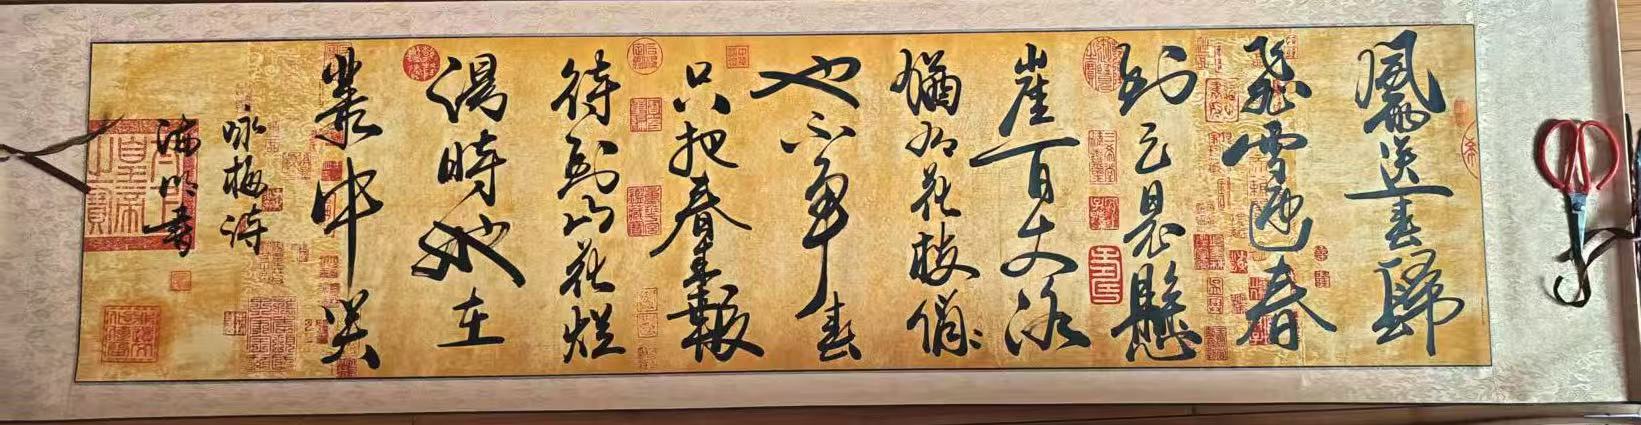 風雨送春歸
飛雪迎春
到已是懸
崖百丈冰
猶有花枝俏
也不爭春
只把春來報
待到山花爛
漫時她在
叢中笑
咏梅詩